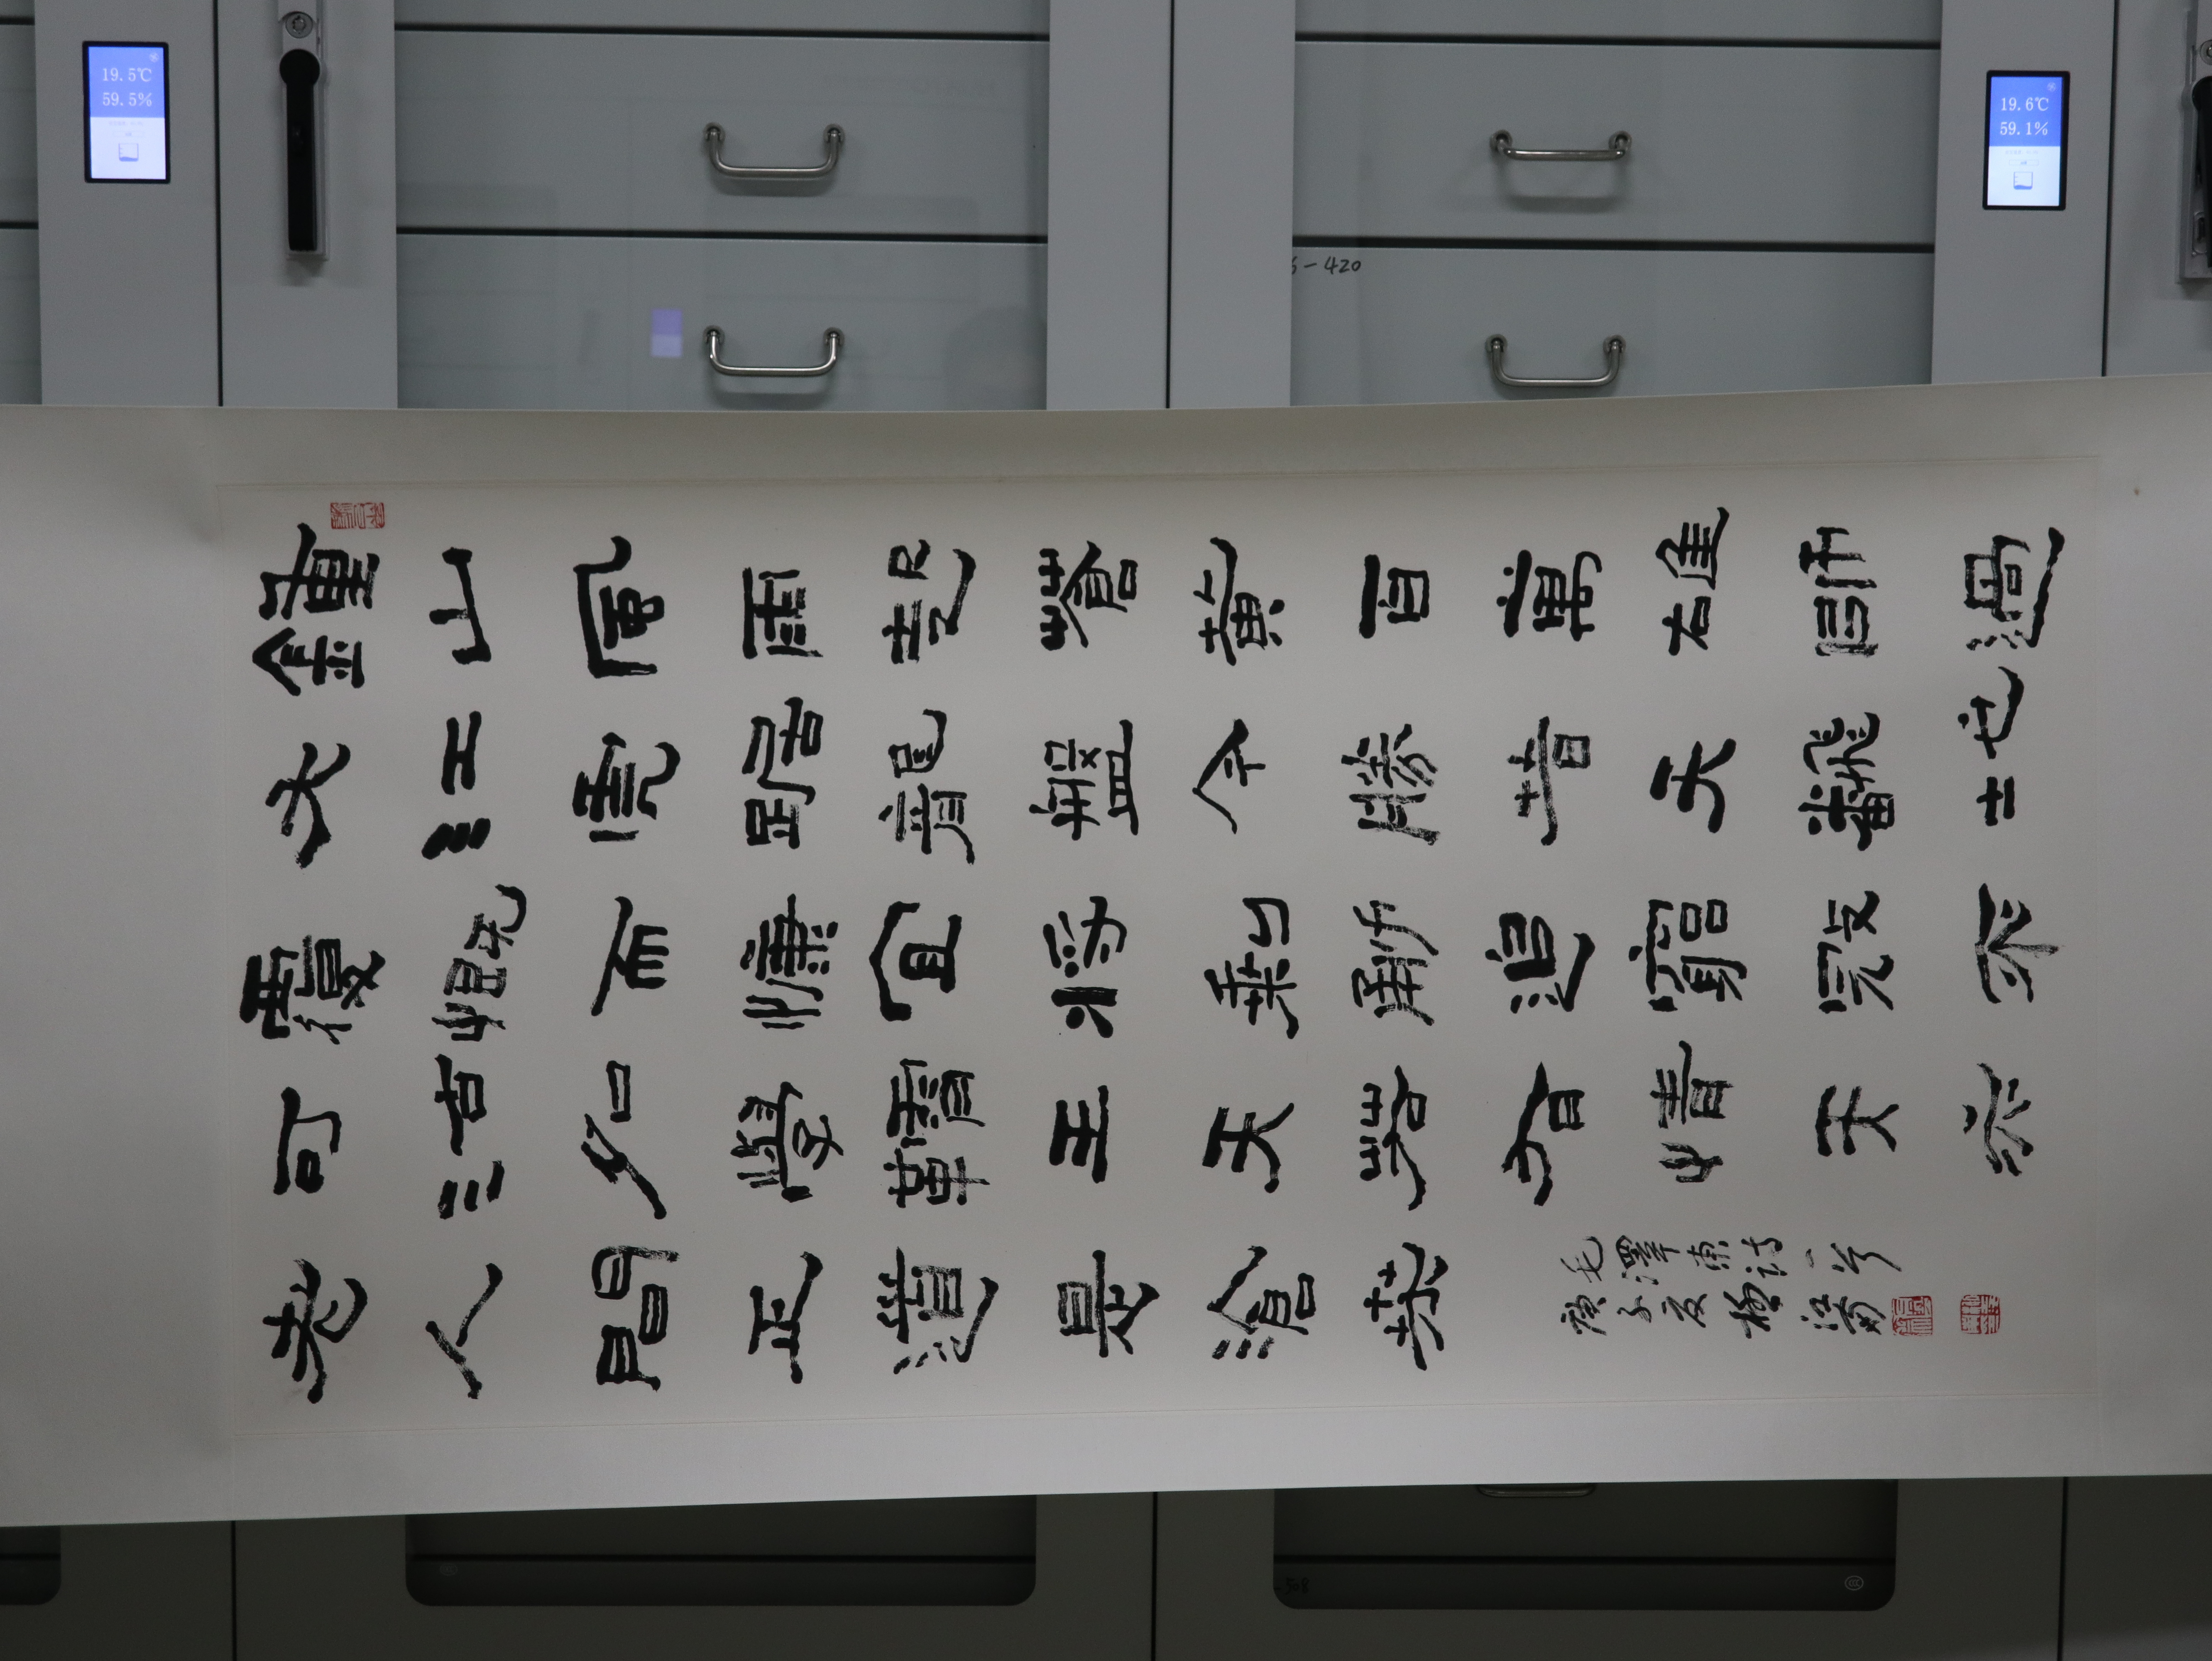 19.5℃
59.5%
19.6℃
59.1%
-420
鍾山風雨起蒼黃百萬雄師過
大江虎踞龍盤今勝昔天翻地
覆慨而慷宜將剩勇追窮寇不
可沽名學霸王天若有情天亦
老人間正道是滄桑
毛澤東詩一首
庚子夏
508